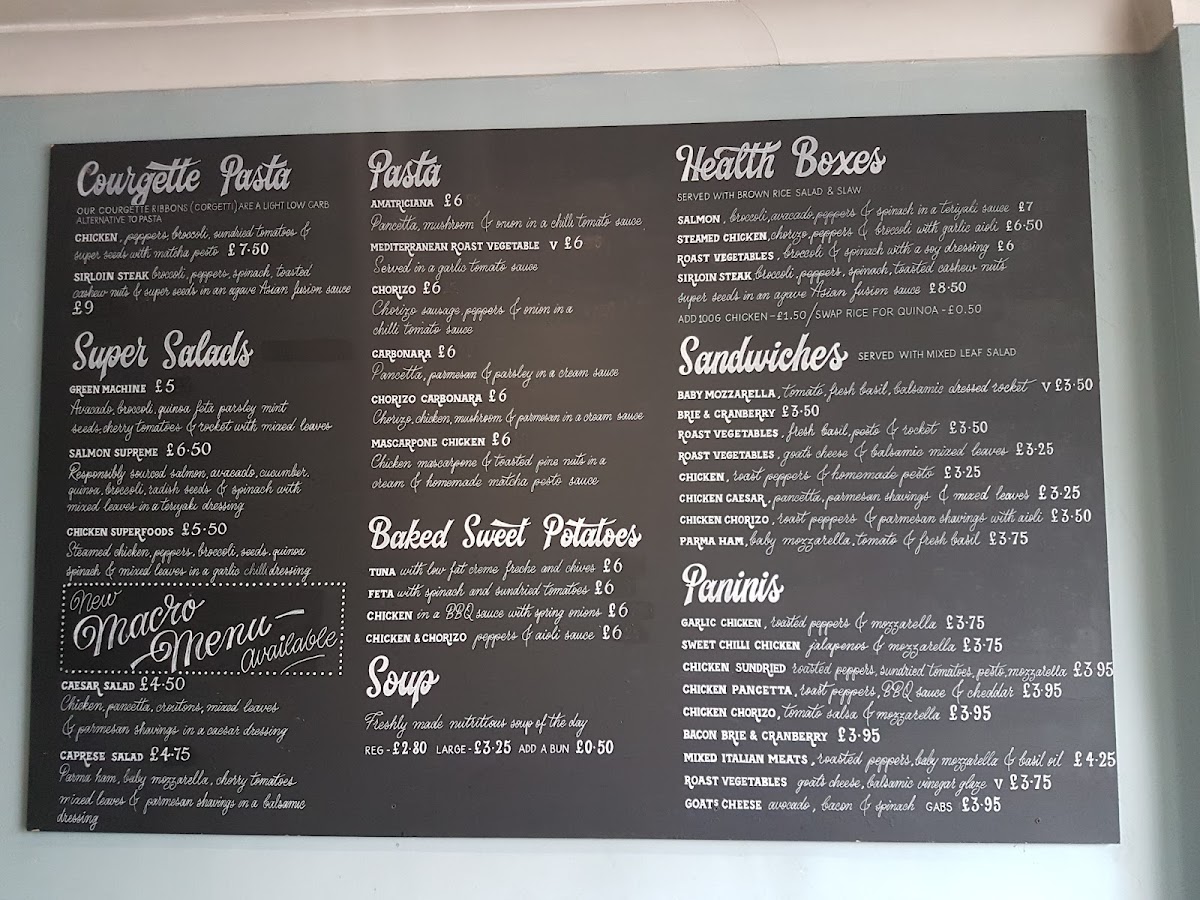 Courgette Pasta
OUR COURGETTE RIBBONS (CORGETTI) ARE A LIGHT LOW CARB
ALTERNATIVE TO PASTA
CHICKEN, peppers, broccoli, sundried tomatoes &
super seeds with matcha pesto £7·50
SIRLOIN STEAK broccoli, peppers, spinach, toasted
cashew nuts & super seeds in an agave Asian fusion sauce
£9
Super Salads
GREEN MACHINE £5
Avacado, broccoli, quinoa feta parsley mint
seeds, cherry tomatoes & rocket with mixed leaves
SALMON SUPREME £6·50
Responsibly sourced salmon, avacado, cucumber,
quinoa, broccoli, radish seeds & spinach with
mixed leaves in a teriyaki dressing
CHICKEN SUPERFOODS £5·50
Steamed chicken, peppers, broccoli, seeds, quinoa
spinach & mixed leaves in a garlic chilli dressing
New
Macro
Menu
available
CAESAR SALAD £4·50
Chicken, pancetta, croutons, mixed leaves
& parmesan shavings in a caesar dressing
CAPRESE SALAD £4·75
Parma ham, baby mozzarella, cherry tomatoes
mixed leaves & parmesan shavings in a balsamic
dressing
Pasta
AMATRICIANA £6
Pancetta, mushroom & onion in a chilli tomato sauce,
MEDITERRANEAN ROAST VEGETABLE V £6
Served in a garlic tomato sauce
CHORIZO £6
Chorizo sausage, peppers & onion in a
chilli tomato sauce
CARBONARA £6
Pancetta, parmesan & parsley in a cream sauce
CHORIZO CARBONARA £6
Chorizo, chicken, mushroom & parmesan in a cream sauce
MASCARPONE CHICKEN £6
Chicken mascarpone & toasted pine nuts in a
cream & homemade matcha pesto sauce
Baked Sweet Potatoes
TUNA with low fat creme freche and chives £6
FETA with spinach and sundried tomatoes £6
CHICKEN in a BBQ sauce with spring onions £6
CHICKEN & CHORIZO peppers & aioli sauce £6
Soup
Freshly made nutritious soup of the day
REG - £2·80 LARGE - £3·25 ADD A BUN £0·50
Health Boxes
SERVED WITH BROWN RICE SALAD & SLAW
SALMON, broccoli, avacado, peppers & spinach in a teriyaki sauce £7
STEAMED CHICKEN, chorizo, peppers & broccoli with garlic aioli £6·50
ROAST VEGETABLES, broccoli & spinach with a soy dressing £6
SIRLOIN STEAK, broccoli, peppers, spinach, toasted cashew nuts
super seeds in an agave Asian fusion sauce £8·50
ADD 100G CHICKEN - £1.50 / SWAP RICE FOR QUINOA - £0.50
Sandwiches SERVED WITH MIXED LEAF SALAD
BABY MOZZARELLA, tomato, fresh basil, balsamic dressed rocket V £3·50
BRIE & CRANBERRY £3·50
ROAST VEGETABLES, fresh basil, pesto & rocket £3·50
ROAST VEGETABLES, goats cheese & balsamic mixed leaves £3·25
CHICKEN, roast peppers & homemade pesto £3·25
CHICKEN CAESAR, pancetta, parmesan shavings & mixed leaves £3·25
CHICKEN CHORIZO, roast peppers & parmesan shavings with aioli £3·50
PARMA HAM, baby mozzarella, tomato & fresh basil £3·75
Paninis
GARLIC CHICKEN, roasted peppers & mozzarella £3·75
SWEET CHILLI CHICKEN jalapenos & mozzarella £3·75
CHICKEN SUNDRIED roasted peppers, sundried tomatoes, pesto, mozzarella £3·95
CHICKEN PANCETTA, roast peppers, BBQ sauce & cheddar £3·95
CHICKEN CHORIZO, tomato salsa & mozzarella £3·95
BACON BRIE & CRANBERRY £3·95
MIXED ITALIAN MEATS, roasted peppers, baby mozzarella & basil oil £4·25
ROAST VEGETABLES goats cheese, balsamic vinegar glaze V £3·75
GOATS CHEESE avocado, bacon & spinach GABS £3·95